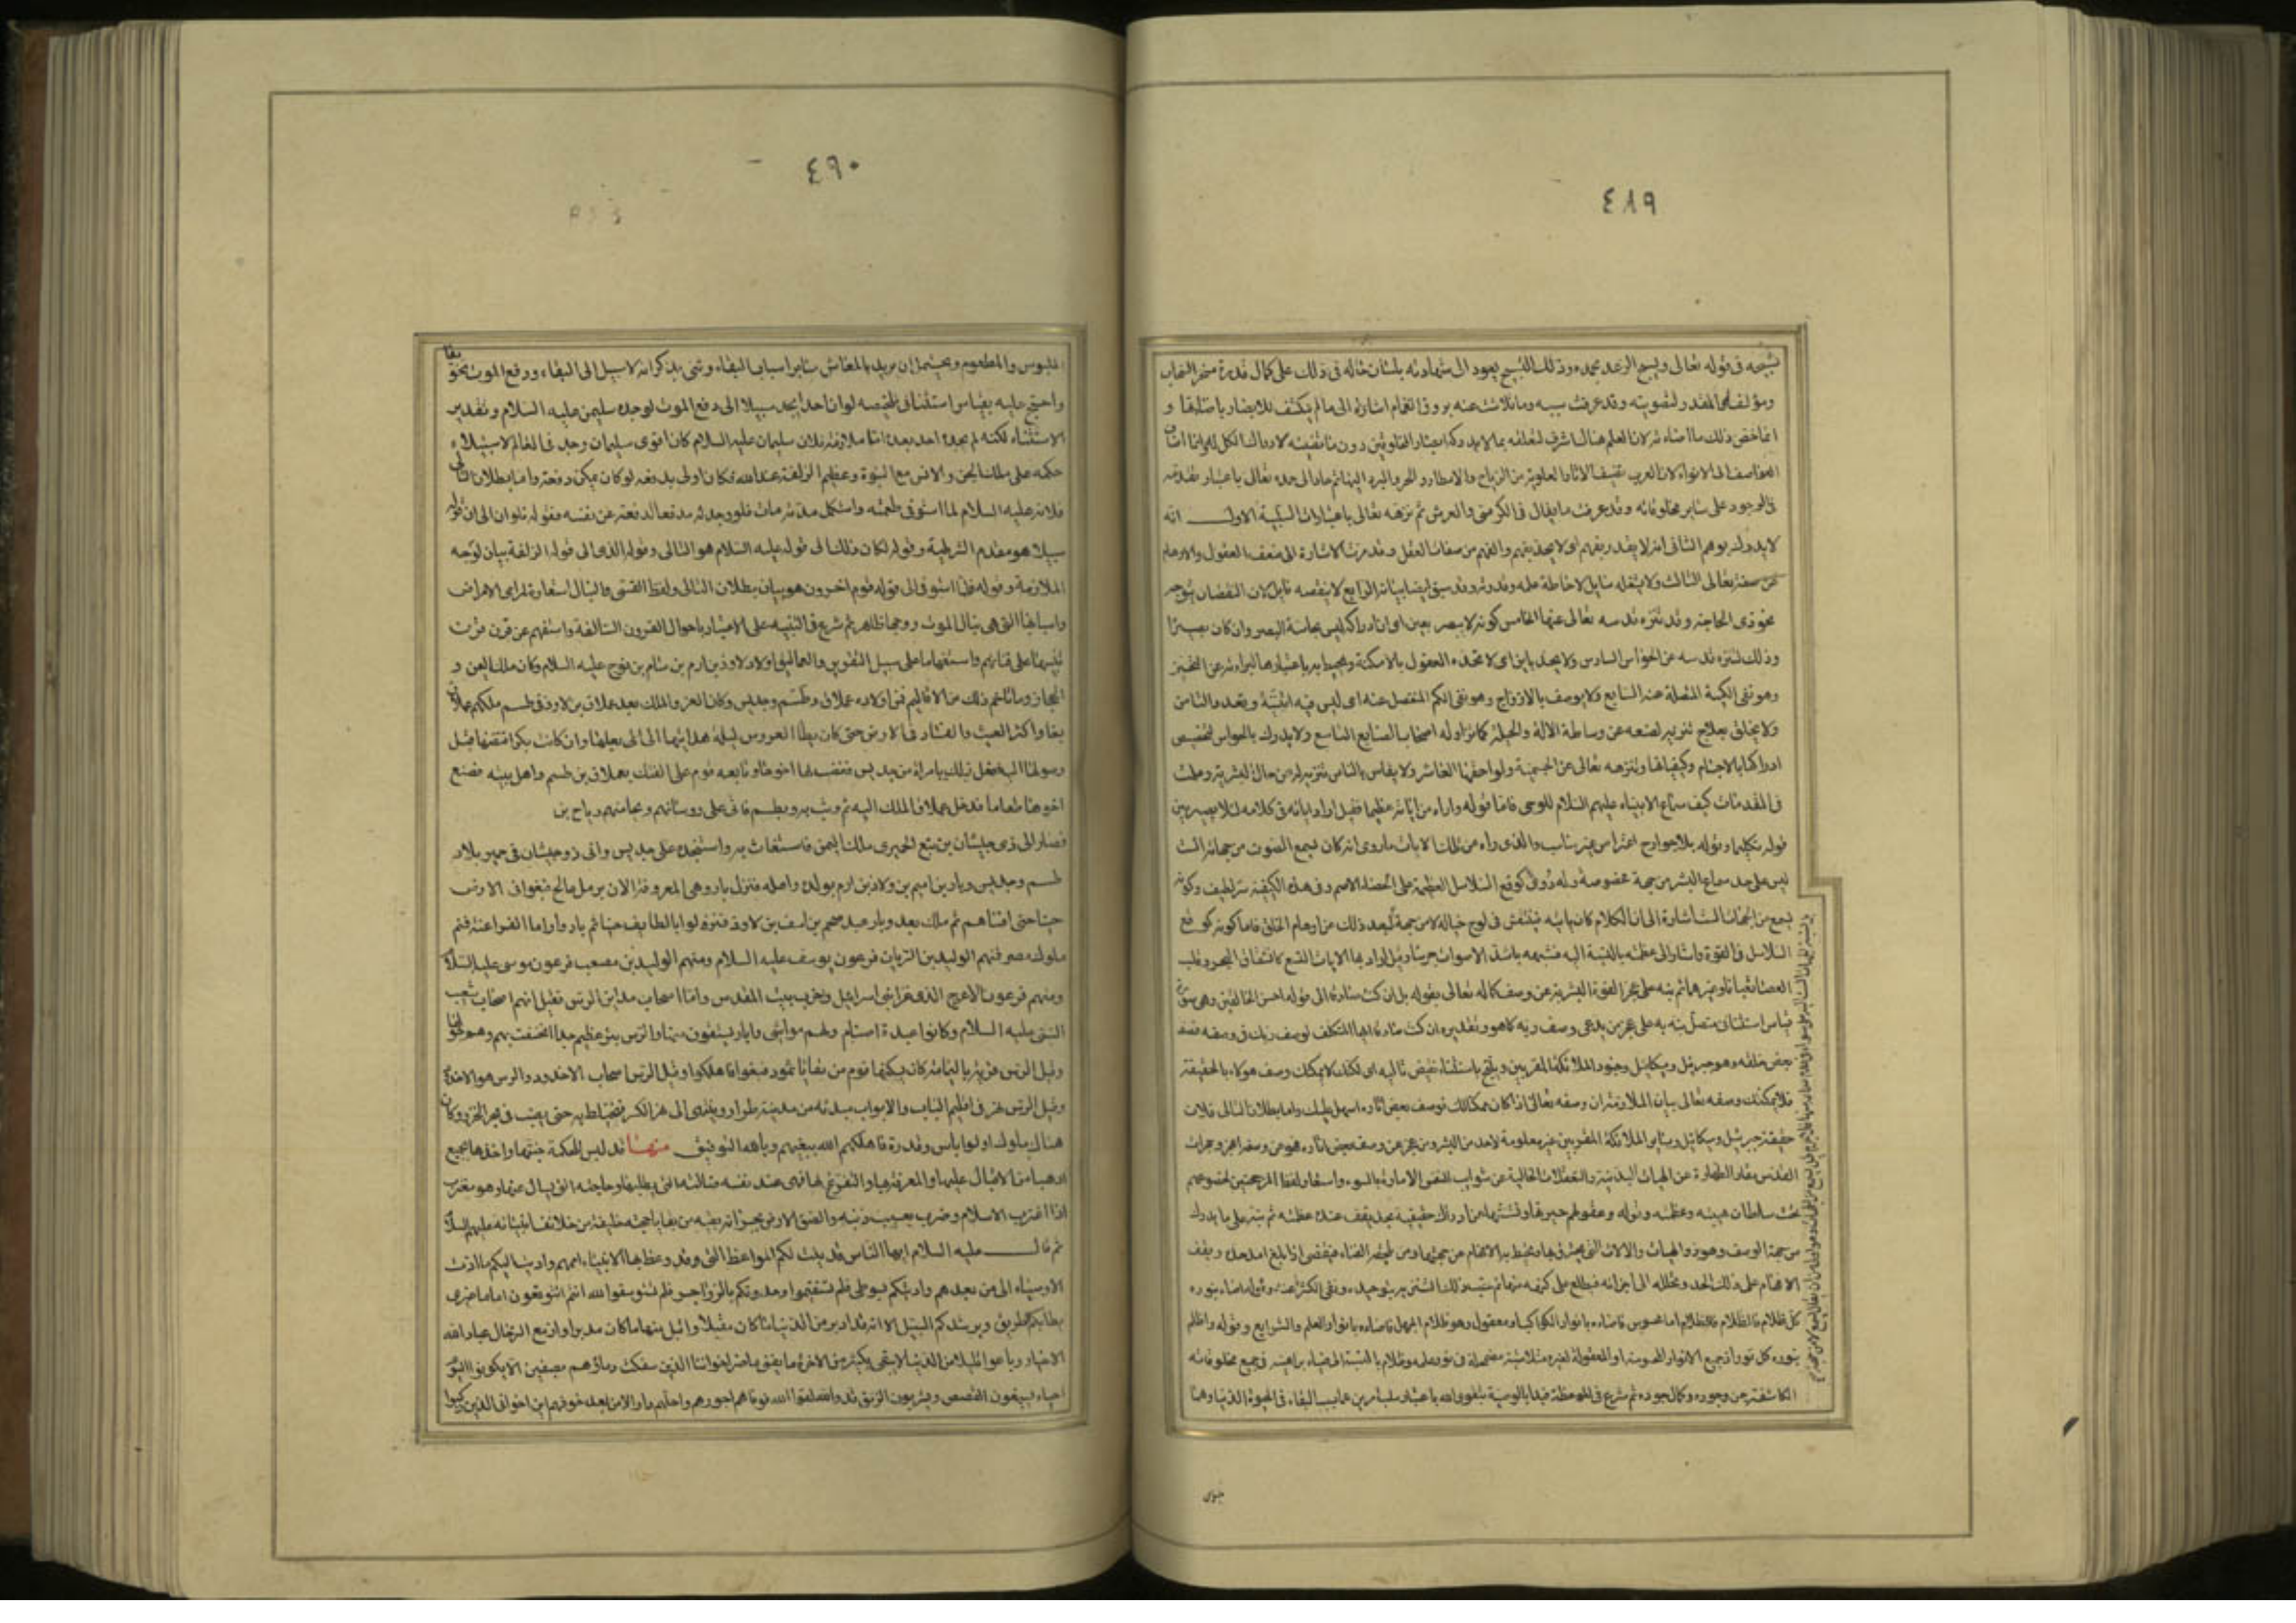 ٤٨٩
تسبيحه فى قوله تعالى ويسبح الرعد بحمده وذلك التسبيح يعود الى شهادته بلسان حاله فى ذلك على كمال قدرة مسخر السحاب
ومؤلفه المقدر لتصويته وقد عرفت سببه وما تلاشت عنه بروق الغمام اشارة الى ما لم ينكشف للابصار باضائتها و
انما خص ذلك ما اضاءته لان العلم هناك اشرف لتعلقه بما لا يدركه ابصار المخلوقين دون ما تضيئه لادراك الكل له وانما اضاف
العواصف الى الانواء لان العرب تضيف الاثار العلوية من الرياح والامطار والحر والبرد اليها ثم عاد الى حمده تعالى باعتبار تقدمه
فى الوجود على سائر مخلوقاته وقد عرفت ما يقال فى الكرسى والعرش ثم نزهه تعالى باعتبارات السلبية الاول انه
لا يدرك بوهم الثانى انه لا يقدر بفهم اى لا يحد بفهم والفهم من صفات العقل وقد مرت الاشارة الى ضعف العقول والاوهام
عن صفته تعالى الثالث ولا يشغله سائل لاحاطة علمه وقدرته وقد سبق ايضا بيانه الرابع لا ينقصه نائل لان النقصان يتوجه
نحو ذى الحاجة وقد تنزه قدسه تعالى عنها الخامس كونه لا يبصر بعين اى ان ادراكه ليس بحاسة البصر وان كان بصيرا
وذلك لتنزه قدسه عن الحواس السادس ولا يحد باين اى لا تحده العقول بالامكنة ويحيط به باعتبارها لبراءته عن التحيز
وهو نفى الكمية المتصلة عنه السابع ولا يوصف بالازواج وهو نفى الكم المنفصل عنه اى ليس فيه اثنينية وتعدد الثامن
ولا يخلق بعلاج تنزيه لصنعه عن وساطة الآلة والحيلة كما تزاوله اصحاب الصنايع التاسع ولا يدرك بالحواس لتخصيص
ادراكها بالاجسام وكيفياتها وتنزهه تعالى عن الجسمية ولواحقها العاشر ولا يقاس بالناس تنزيه له عن مماثل البشرية وعلمت
فى المقدمات كيف سماع الانبياء عليهم السلام للوحى فاما قوله واراه من اياته عظيما فقيل اراد اياته فى كلامه لئلا يصير بين
قوله تكليما وقوله بلا جوارح اعتراض غير مناسب والذى راه من تلك الايات ما روى انه كان يسمع الصوت من جهاته الست
ليس على حد سماع البشر من جهة مخصوصة وله دوى كوقع السلاسل العظيمة على الحصا الاصم وفى هذه الكيفية سر لطيف وكونه
يسمع من الجهات الست اشارة الى ان الكلام كان ياتيه فينتقش فى لوح خياله لا من جهة لبعد ذلك عن اوهام الخلق فاما كونه كوقع
السلاسل فى القوة واشار الى عظمته بالنسبة اليه فشبهه باشد الاصوات جرسا وقيل اراد بها الايات التسع كانشقاق البحر وقلب
العصا ثعبانا وغيرهما ثم نبه على عجز القوة البشرية عن وصف كماله تعالى بقوله بل ان كنت صادقا الى قوله احسن الخالقين وهى صورة
قياس استثنائى متصل نبه به على عجز من يدعى وصف ربه كما هو وتقديره ان كنت صادقا ايها المتكلف لوصف ربك فى وصفه فصف
بعض خلقه وهو جبريل وميكائيل وجنود الملائكة المقربين وينتج باستثناء نقيض تاليه اى لكنك لا يمكنك وصف هولاء بالحقيقة
فلا يمكنك وصفه تعالى بيان الملازمة ان وصفه تعالى اذا كان ممكنا لك فوصف بعض اثاره اسهل عليك واما بطلان التالى فلان
حقيقة جبرئيل وميكائيل وسائر الملائكة المقربين غير معلومة لاحد من البشر ومن عجز عن وصف بعض اثاره فهو عن وصفه اعجز وحجرات
القدس مقار الطهارة عن الهيات البدنية والتعلقات الخالية عن شوائب النفس الامارة بالسوء واستعار لفظ المرجحنين لخضوعهم
تحت سلطان هيبته وعظمته وقوله وعقولهم حيرتها وتشتتها عن ادراك حقيقته بحد يقف عنده عظمته ثم نبه على ما يدرك
من جهة الوصف وهو ذو الهيات والالات التى يحترف بها ويحيط به الافهام من جهتها ومن يلحقه الفناء فينقضى اذا بلغ امد حده ويقف
الافهام على ذلك الحد وتحلله الى اجزائه فيطلع على كنهه منها ثم عقب ذلك التنزيه بتوحيده ونفى الكثرة عنه وقوله اضاء بنوره
كل ظلام فالظلام اما محسوس فاضاءه بانوار الكواكب او معقول وهو ظلام الجهل فاضاءه بانوار العلم والشرايع وقوله واظلم
بنوره كل نور اذ جميع الانوار المحسوسة او المعقولة لغيره متلاشية مضمحلة فى نور علمه وظلام بالنسبة الى ضياء براهينه فى جميع مخلوقاته
الكاشفة عن وجوده وكمال جوده ثم شرع فى الموعظة فبدا بالوصية بتقوى الله باعتبار سلب امرين هما سبب البقاء فى الحيوة الدنيا وهما
٤٩٠
الملبوس والمطعوم ويحتمل ان يريد بالمعاش سائر اسباب البقاء وثنى بذكر انه لا سبيل الى البقاء ودفع الموت تخويفا
واحتج عليه بقياس استثنائى تلخيصه لو ان احدا يجد سبيلا الى دفع الموت لوجده سليمن عليه السلام وتقدير
الاستثناء لكنه لم يجده احد بعده اما الملازمة فلان سليمان عليه السلام كان اقوى سليمان وجد فى العالم لاستيلاء
حكمه على ملك الجن والانس مع النبوة وعظيم الزلفة عند الله فكان اولى بدفعه لو كان يمكن دفعه واما بطلان التالى
فلانه عليه السلام لما استوفى طعمته واستكمل مدته مات فلو وجد مدفعا لدفعه عن نفسه فقوله فلو ان الى ان قوله
سبيلا هو مقدم الشرطية وقوله لكان ذلك الى قوله عليه السلام هو التالى وقوله الذى الى قوله الزلفة بيان لوجه
الملازمة وقوله فلما استوفى الى قوله قوم اخرون هو بيان بطلان التالى ولفظ القسى والنبال استعارة لمرامى الامراض
واسبابها التى هى نبال الموت ووجهها ظاهر ثم شرع فى التنبيه على الاعتبار باحوال القرون السالفة واستفهم عن قرن قرن
تنبيها على فنائهم واستفهاما على سبيل التقرير والعماليق اولاد لاوذ بن ارم بن سام بن نوح عليه السلام وكان ملك اليمن و
الحجاز وما تاخم ذلك من الاقاليم فمن اولاده عملاق وطسم وجديس وكان العز والملك بعد عملاق بن لاوذ فى طسم ملكهم عملاق
بغا واكثر العيث والفساد فى الارض حتى كان يطأ العروس ليلة هدائها الى بعلها وان كانت بكرا افتضها قبل
وصولها اليه ففعل ذلك بامراة من جديس فغضب لها اخوها وتابعه قوم على الفتك بعملاق بن طسم واهل بيته فصنع
اخوها طعاما فدخل عملاق الملك اليه ثم وثب به وبطسم فاتى على روسائهم ونجا منهم رياح بن
فصار الى ذى جيشان بن تبع الحميرى ملك اليمن فاستغاث به واستنجده على جديس واتى ذو جيشان فى حمير بلاد
طسم وجديس وبار بن اميم بن ولاذ بن ارم بولده واهله فنزل بارض وهى المعروفة الان برمل عالج فبغوا فى الارض
حينا حتى افناهم ثم ملك بعد وبار عبد ضخم بن اسف بن لاوذ فنزلوا بالطايف حينا ثم بادوا واما الفراعنة فهم
ملوك مصر فمنهم الوليد بن الريان فرعون يوسف عليه السلام ومنهم الوليد بن مصعب فرعون موسى عليه السلام
ومنهم فرعون الاعرج الذى غزا بنى اسرائيل وخرب بيت المقدس واما اصحاب مداين الرس فقيل انهم اصحاب شعيب
النبى عليه السلام وكانوا عبدة اصنام ولهم مواشى وابار يسقون منها والرس بئر عظيم جدا انخسفت بهم وهم حولها
وقيل الرس قرية باليمامة كان يسكنها قوم من بقايا ثمود فبغوا فاهلكوا وقيل الرس اصحاب الاخدود والرس هو الاخدود
وقيل الرس نهر فى اقليم الباب والابواب مبدئه من مدينة طراز وينتهى الى نهر الكر فيختلط به حتى يصب فى بحر الخزر وكان
هناك ملوك اولوا باس وقدرة فاهلكهم الله ببغيهم وبالله التوفيق منها قد لبس للحكمة جنتها واخذها بجميع
ادبها من الاقبال عليها والمعرفة بها والتفرغ لها فهى عند نفسه ضالته التى يطلبها وحاجته التى يسال عنها وهو مغترب
اذا اغترب الاسلام وضرب بعسيب ذنبه والصق الارض بجرانه بقية من بقايا حجته خليفة من خلائف انبيائه عليهم السلام
ثم قال عليه السلام ايها الناس قد بثثت لكم المواعظ التى وقد وعظ بها الانبياء اممهم واديت اليكم ما ادت
الاوصياء الى من بعدهم وادبتكم بسوطى فلم تستقيموا وحدوتكم بالزواجر فلم تستوسقوا لله انتم اتتوقعون اماما غيرى
يطابكم الطريق ويرشدكم السبيل الا انه قد ادبر من الدنيا ما كان مقبلا واقبل منها ما كان مدبرا وازمع الترحال عباد الله
الاخيار وباعوا قليلا من الدنيا لا يبقى بكثير من الاخرة ما يفنى ما ضر اخواننا الذين سفكت دماؤهم بصفين الا يكونوا اليوم
احياء يسيغون الغصص ويشربون الرنق قد والله لقوا الله فوفاهم اجورهم واحلهم دار الامن بعد خوفهم اين اخوانى الذين ركبوا